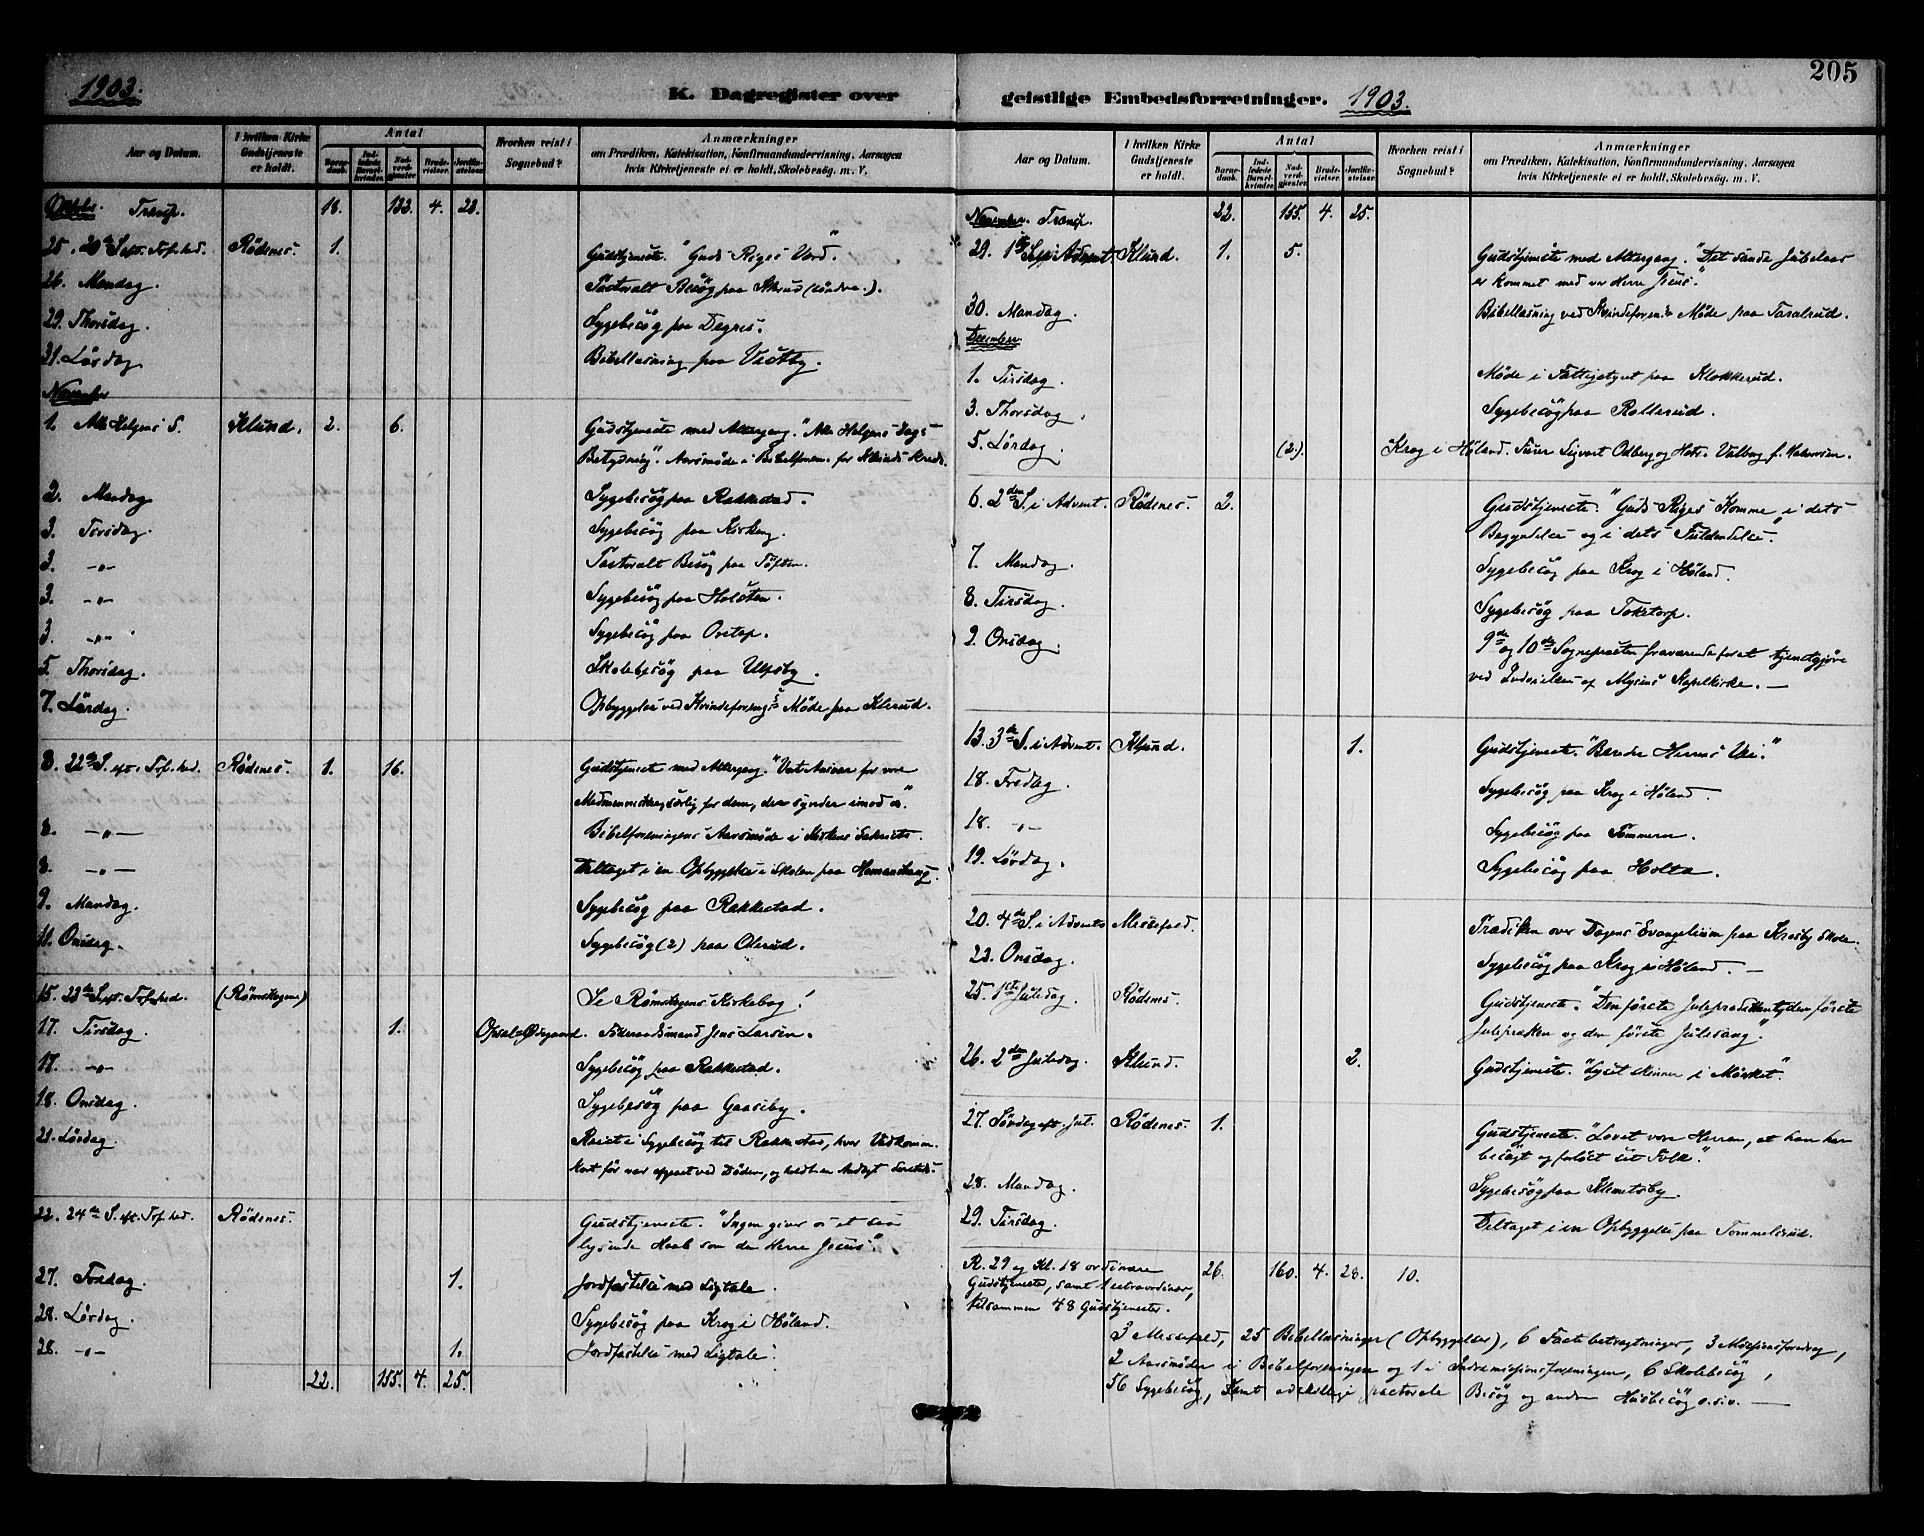 1903.
K. Dagregister over
Aar og Datum.
I hvilken Kirke Gudstjeneste er holdt.
Antal
Barnedaab.
Indledede Barselkvinder.
Nadverdgjester.
Brudevielser.
Jordfæstelser.
Hvorhen reist i Sognebud?
Anmærkninger
om Prædiken, Katekisation, Konfirmandundervisning, Aarsagen
hvis Kirketjeneste ei er holdt, Skolebesøg. m. V.
Oktober. Transp. 18. 132. 4. 23.
25. 20de S. eft. Tref.hed. Rødenes. 1. Gudstjeneste. "Guds Riges Værd".
26. Mandag. Pastoralt Besøg paa
29. Thorsdag. Sygebesøg paa Degnes.
31. Lørdag. Bibellæsning paa
November
1. Alle Helgens S. Klund. 2. 6. Gudstjeneste med Altergang. "Alle Helgens Dags
Betydning". Aarsmøde i Bibelforen. for Klunds Kreds.
2. Mandag Sygebesøg paa Rakkestad.
3. Tirsdag. Sygebesøg paa Kirkeng.
3. -"- Pastoralt Besøg paa Toften.
3. -"- Sygebesøg paa Holsten.
3. -"- Sygebesøg paa
5. Thorsdag. Skolebesøg paa Ulfsby.
7. Lørdag. Opbyggelse ved Kvindeforengs Møde paa Klerud.
8. 22de S. eft. Tref.hed. Rødenes. 1. 16. Gudstjeneste med Altergang. "Vort Ansvar for vore
Medmennesker, særlig for dem, der synder imod os."
8. -"- Bibelforeningens Aarsmøde i Kirkens Sakristi.
8. -"- Deltaget i en Opbyggelse i Skolen paa
9. Mandag. Sygebesøg paa Rakkestad.
11. Onsdag. Sygebesøg (2) paa Olerud.
15. 23de S. eft. Tref.hed. (Rømskogene) Se Rømskogens Kirkebog!
17. Tirsdag. 1. Opsal=Ødegaard. Jens Larsen.
17. -"- Sygebesøg paa Rakkestad.
18. Onsdag. Sygebesøg paa Gaaseby.
21. Lørdag. Reiste i Sygebesøg til Rakkestad, hvor Vedkomm.
kort før var afgaaet ved Døden, og holdt en Andagt
22. 24de S. eft. Tref.hed. Rødenes. Gudstjeneste. "Ingen giver os et saa
lysende Haab som den Herre Jesus."
27. Fredag. 1. Jordfæstelse med Ligtale.
28. Lørdag. Sygebesøg paa Krog i Høland.
28. -"- 1. Jordfæstelse med Ligtale.
22. 155. 4. 25.
205
geistlige Embedsforretninger. 1903.
Aar og Datum.
I hvilken Kirke Gudstjeneste er holdt.
Antal
Barnedaab.
Indledede Barselkvinder.
Nadverdgjester.
Brudevielser.
Jordfæstelser.
Hvorhen reist i Sognebud?
Anmærkninger
om Prædiken, Katekisation, Konfirmandundervisning, Aarsagen
hvis Kirketjeneste ei er holdt, Skolebesøg. m. V.
November. Transp. 22. 155. 4. 25.
29. 1ste S. i Advent Klund. 1. 5. Gudstjeneste med Altergang. "Det sande Jubelaar
er kommet med vor Herre Jesus."
30. Mandag. Bibellæsning ved Kvindeforen.s Møde paa Taralrud.
December
1. Tirsdag. Møde i Fattigstyret paa Klokkerud.
3. Thorsdag. Sygebesøg paa Rollerud.
5. Lørdag. (2.) Krog i Høland. Furer Sigvart Odberg og Hstr. Valborg f. Halvorsen.
6. 2den S. i Advent. Rødenes. 2. Gudstjeneste. "Guds Riges Komme i dets
Begyndelse og i dets Fuldendelse."
7. Mandag. Sygebesøg paa Krog i Høland.
8. Tirsdag. Sygebesøg paa Tokstorp.
9. Onsdag. 9de og 10de Sognepræsten fraværende for at tjenstgjøre
ved Indvielsen af Mysens Kapelkirke. —
13. 3de S. i Advent. Klund. 1. Gudstjeneste. "Bered Herrens Vei."
18. Fredag. Sygebesøg paa Krog i Høland.
18. -"- Sygebesøg paa Tømmeren.
19. Lørdag. Sygebesøg paa Holta.
20. 4de S. i Advents Messefald. Prædiken over Dagens Evangelium paa Kroby Skole.
23. Onsdag. Sygebesøg paa Krog i Høland. —
25. 1ste Juledag. Rødenes. Gudstjeneste. "Den første Juleprædikant, den første
Julepræken og den første Julesang."
26. 2den Juledag. Klund. 2. Gudstjeneste. "Lyset skinner i Mørket."
27. Søndag eft. Jul. Rødenes. 1. Gudstjeneste. "Lovet være Herren, at han har
besøgt og forløst sit Folk."
28. Mandag. Sygebesøg paa Klemetsby.
29. Tirsdag. Deltaget i en Opbyggelse paa Tommelsrud.
R. 29 og Kl. 18 ordinære 26. 160. 4. 28. 10.
Gudstjenester, samt 1 extraordinær,
tilsammen 48 Gudstjenester.
3 Messefald, 25 Bibellæsninger (Opbyggelser), 6 Fastebetragtninger, 3 Missionsforedrag,
2 Aarsmøder i Bibelforeningen og 1 i Indremissionsforeningen, 6 Skolebesøg,
56 Sygebesøg, samt adskillige pastorale Besøg og andre Husbesøg o.s.v. —